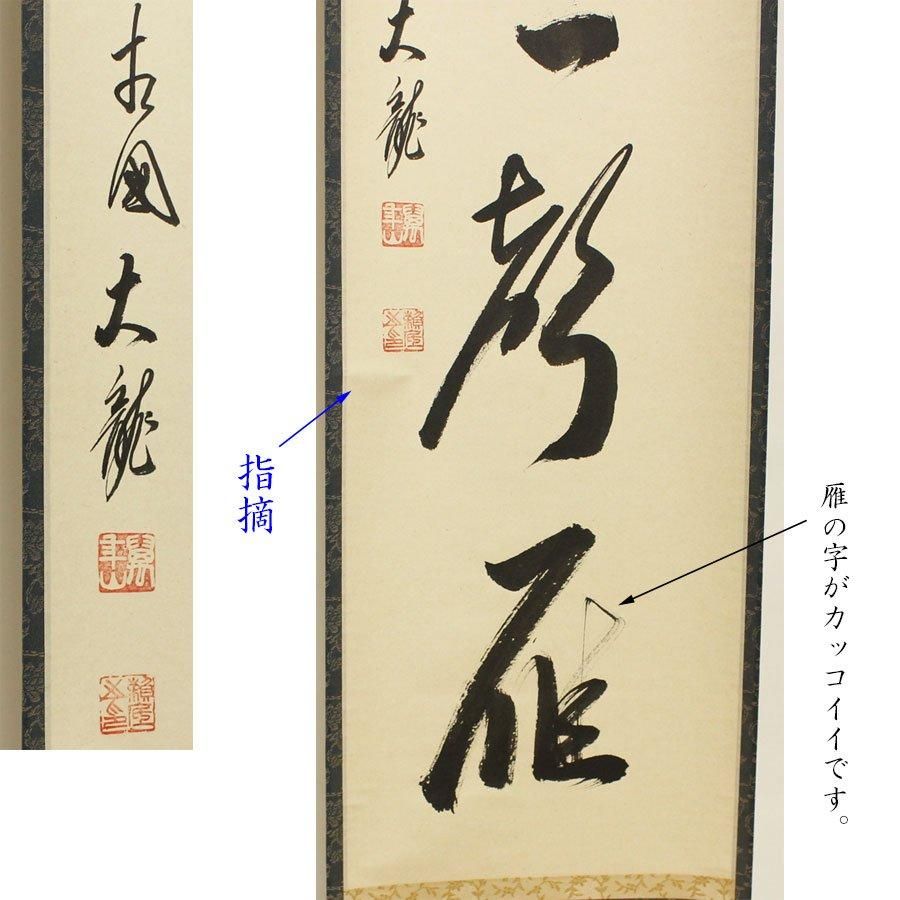 相國大龍
一聲雁
大龍
指摘
雁の字がカッコイイです。